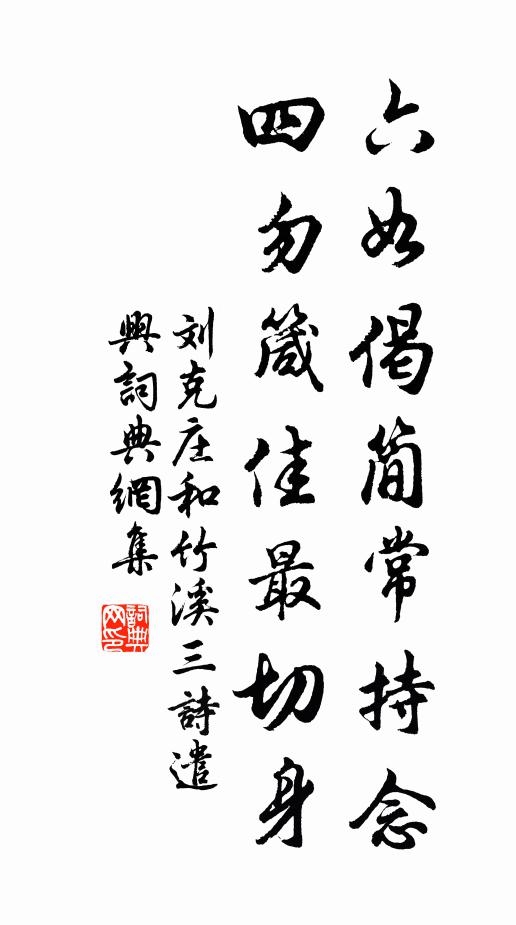 六如偈简常持念
四勿箴佳最切身
刘克庄和竹溪三詩遣
興詞典網集
詞典网印